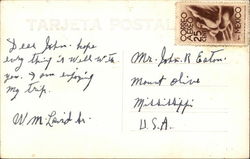 TARJETA POSTAL
CORREO AEREO
MEXICO
Dear John. hope
evry thing is well with
you. I am enjoying
my trip.
W M Laird Sr.
Mr. John. R Eaton.
Mount Olive
Mississippi
U.S.A.